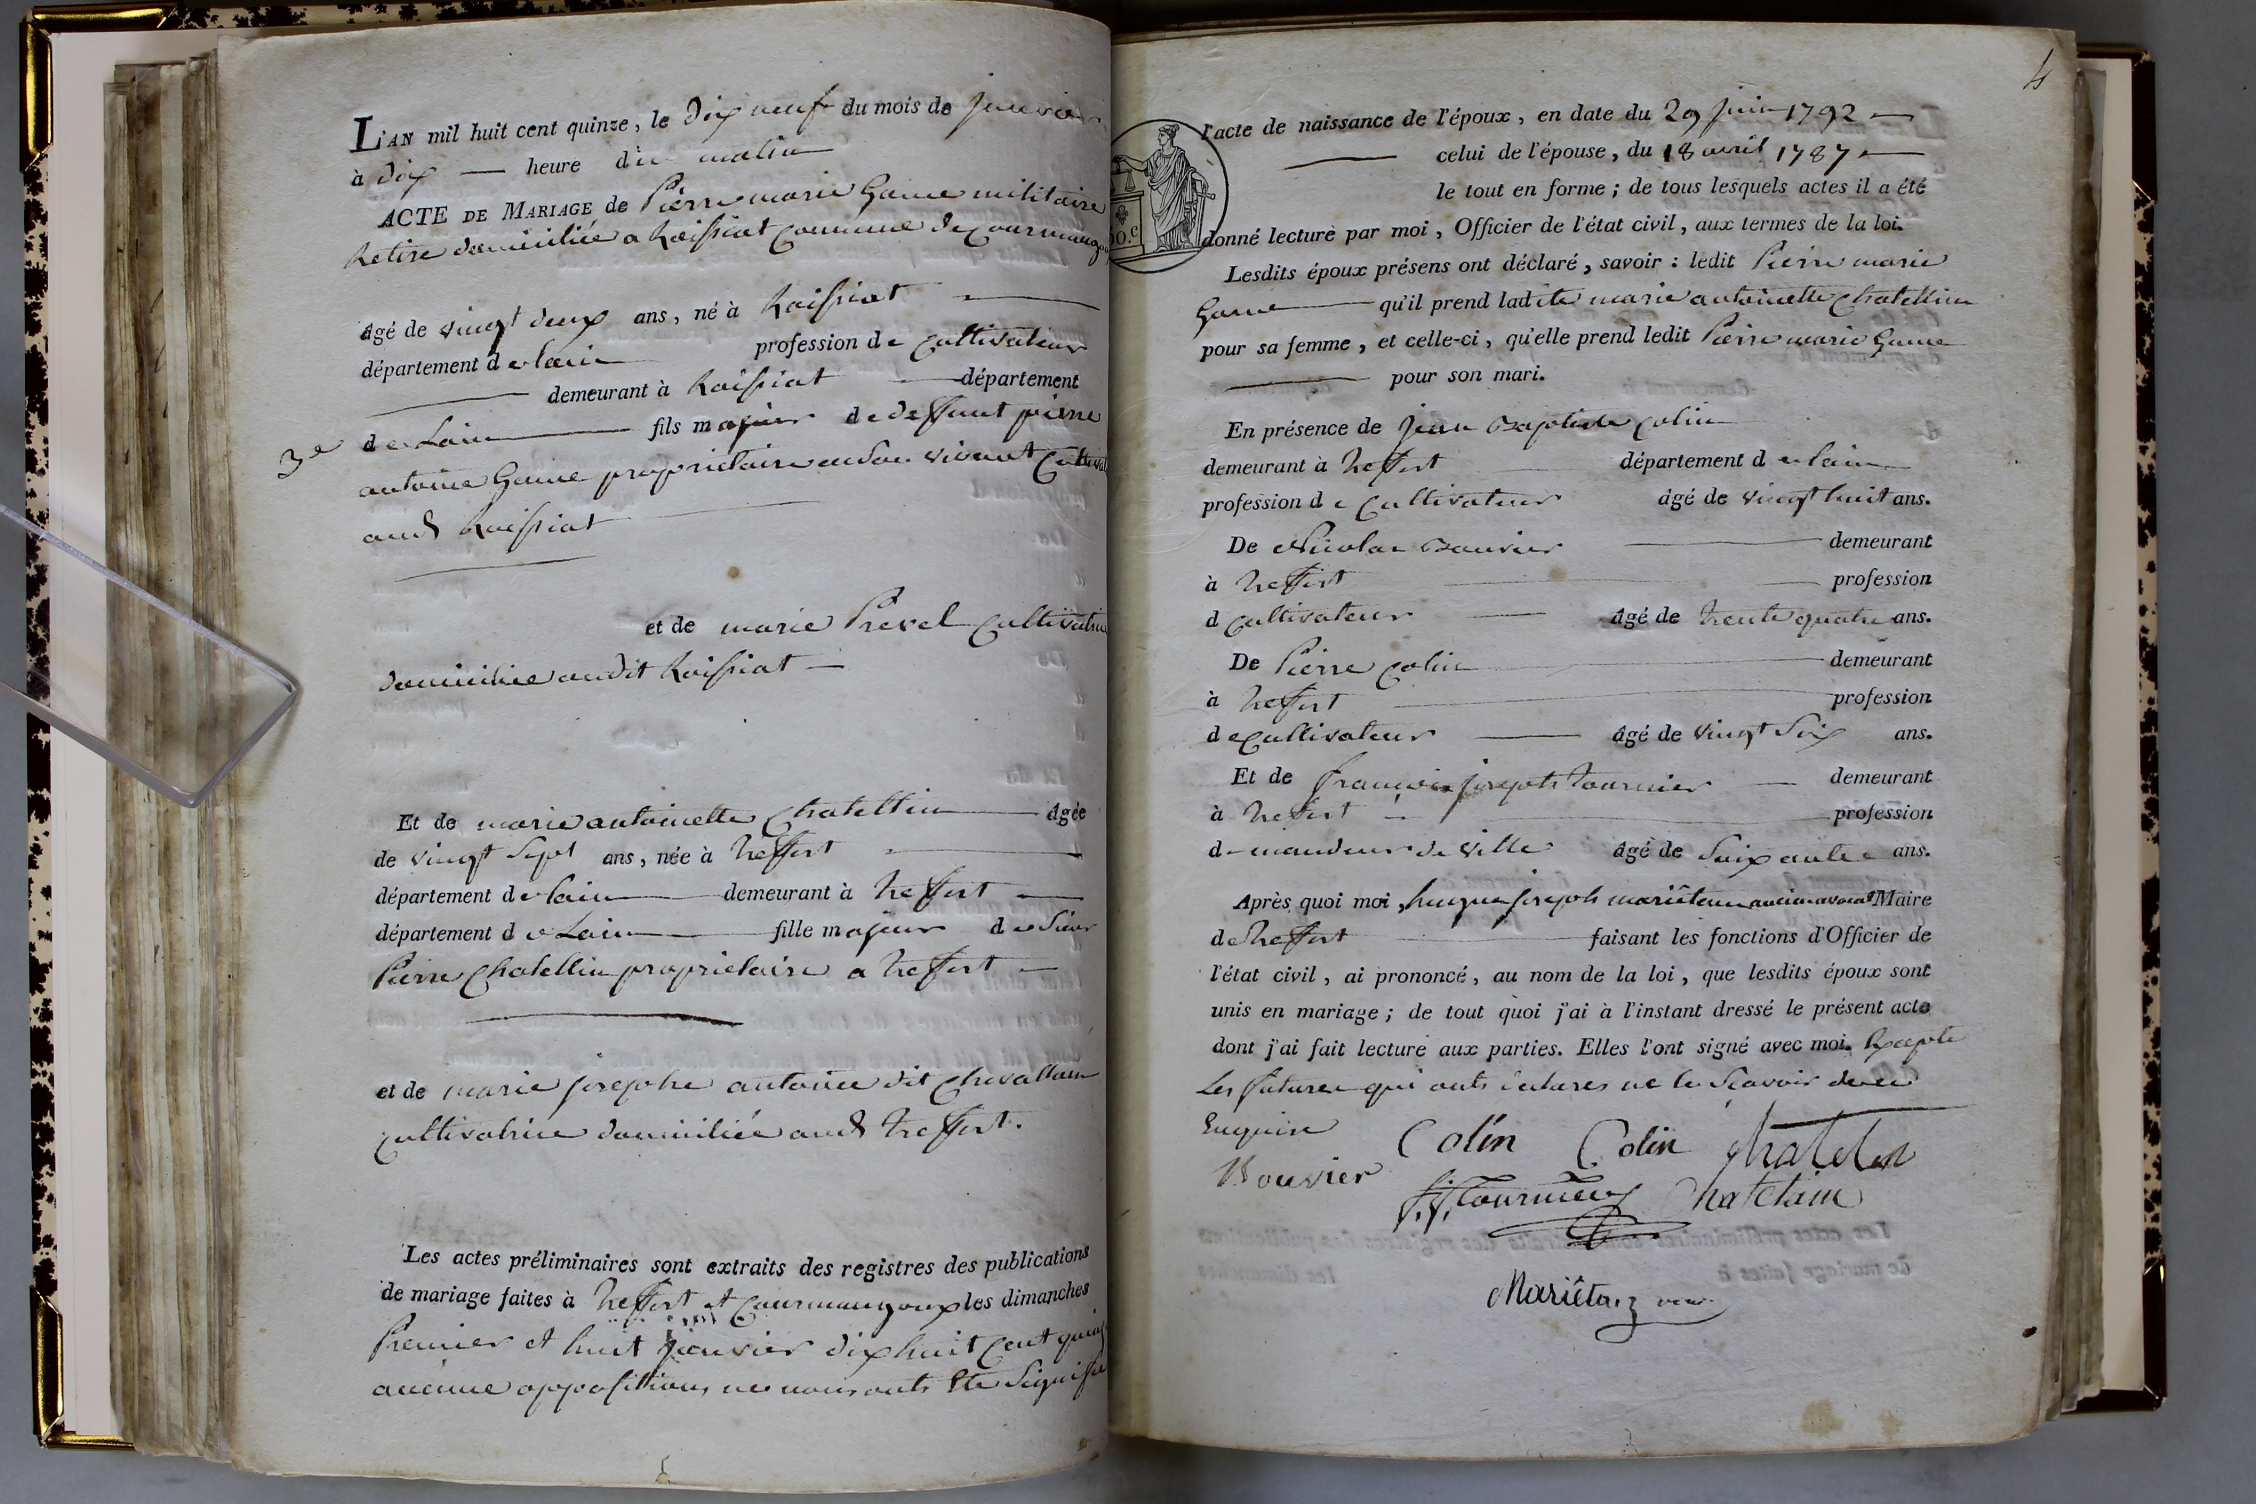 L'AN mil huit cent quinze, le dix neuf du mois de janvier
à dix heure du matin
ACTE DE MARIAGE de Pierre marie Game militaire
Retiré domiciliée a Roissiat Commune de Courmangoux
âgé de vingt deux ans, né à Roissiat
département de lain profession de Cultivateur
demeurant à Roissiat département
3e
de Lain fils majeur de deffunt pierre
antoine Game proprietaire en son vivant Cultivat
aud Roissiat
et de marie Prevel Cultivatrice
domiciliée audit Roissiat
Et de marie antoinette Chatellin âgée
de vingt Sept ans, née à treffort
département de lain demeurant à treffort
département de Lain fille majeur de Sieur
Pierre Chatellin proprietaire a treffort
et de marie josephe antoine dit Chevallier
Cultivatrice domiciliée aud treffort.
Les actes préliminaires sont extraits des registres des publications
de mariage faites à treffort et Courmangoux les dimanches
Premier et huit janvier dix huit Cent quinze
aucune oppositions ne nous onts Eté Signifié
4
l'acte de naissance de l'époux, en date du 29 juin 1792
celui de l'épouse, du 18 avril 1787
le tout en forme ; de tous lesquels actes il a été
donné lecture par moi, Officier de l'état civil, aux termes de la loi.
Lesdits époux présens ont déclaré, savoir : ledit Pierre marie
Game qu'il prend ladite marie antoinette Chatellin
pour sa femme, et celle-ci, qu'elle prend ledit Pierre marie Game
pour son mari.
En présence de jean Baptiste Colin
demeurant à treffort département de lain
profession de Cultivateur âgé de vingt huit ans.
De Nicolas Bouvier demeurant
à treffort profession
d Cultivateur âgé de trente quatre ans.
De Pierre Colin demeurant
à treffort profession
de Cultivateur âgé de vingt Six ans.
Et de françois joseph tournier demeurant
à treffort profession
de mandeur de ville âgé de Soixante ans.
Après quoi moi, hugue joseph mariêtan ancien avocat Maire
de treffort faisant les fonctions d'Officier de
l'état civil, ai prononcé, au nom de la loi, que lesdits époux sont
unis en mariage ; de tout quoi j'ai à l'instant dressé le présent acte
dont j'ai fait lecture aux parties. Elles l'ont signé avec moi. Excepte
Les futures qui onts declares ne le Scavoir de ce
Enquis
Colin Colin Chatelin
Bouvier
f. j. Tournier Chatelain
Mariêtan